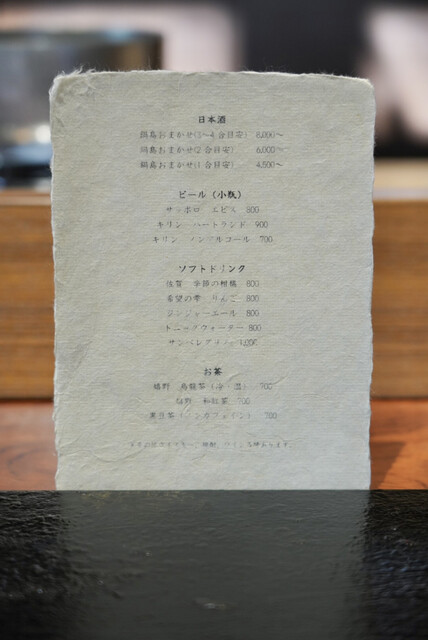 日本酒
鍋島おまかせ(3〜4合目安) 8,000〜
鍋島おまかせ(2合目安) 6,000〜
鍋島おまかせ(1合目安) 4,500〜
ビール（小瓶）
サッポロ エビス 800
キリン ハートランド 900
キリン ノンアルコール 700
ソフトドリンク
佐賀 季節の柑橘 800
希望の雫 りんご 800
ジンジャーエール 800
トニックウォーター 800
サンペレグリノ 1,000
お茶
嬉野 烏龍茶（冷・温） 700
嬉野 和紅茶 700
黒豆茶（ノンカフェイン） 700